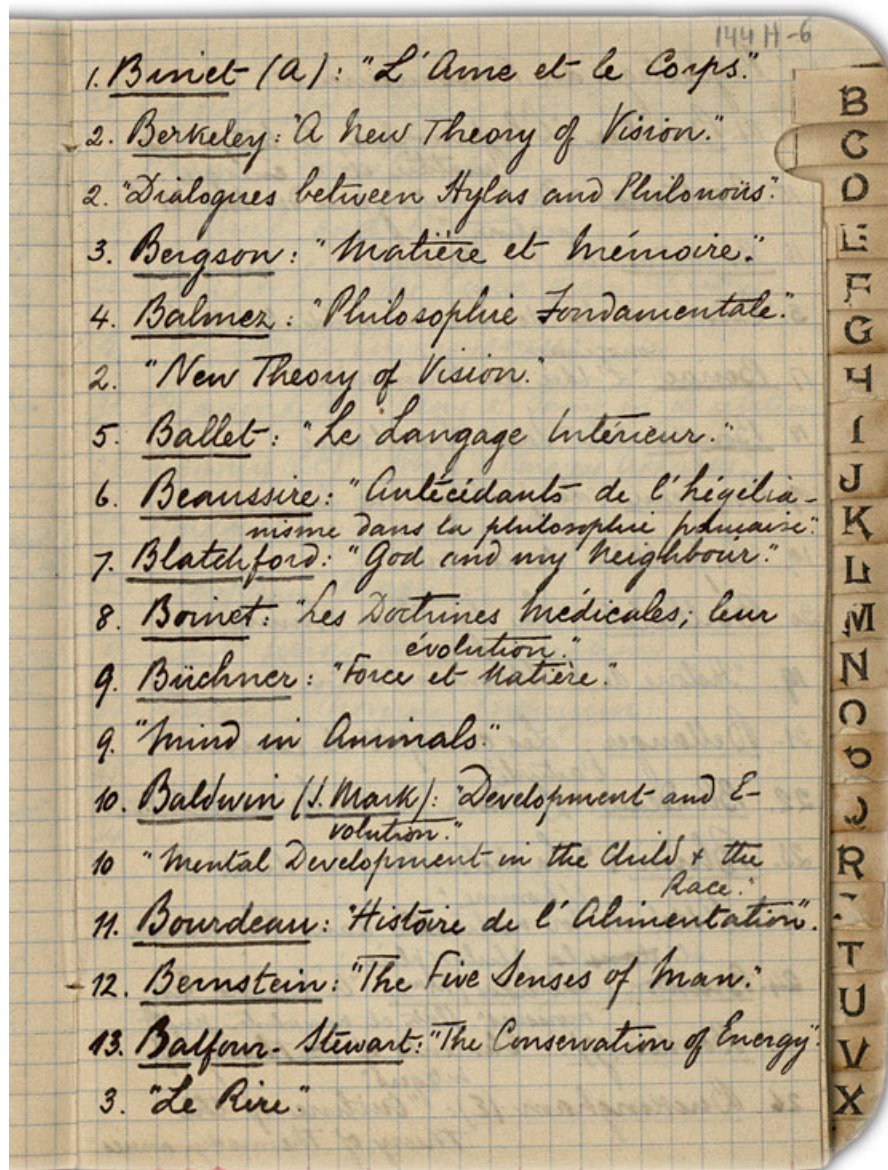 144 H-6
1. Binet (A): "L'Ame et le Corps."
2. Berkeley: "A New Theory of Vision."
2. "Dialogues between Hylas and Philonous".
3. Bergson: "Matière et Mémoire."
4. Balmez: "Philosophie Fondamentale".
2. "New Theory of Vision."
5. Ballet: "Le Langage Intérieur."
6. Beaussire: "Antécédants de l'hégélia-
nisme dans la philosophie française".
7. Blatchford: "God and my Neighbour".
8. Boinet: "Les Doctrines Médicales; leur
évolution."
9. Büchner: "Force et Matière."
9. "Mind in Animals."
10. Baldwin (J. Mark): "Development and E-
volution."
10 "Mental Development in the Child & the
Race."
11. Bourdeau: "Histoire de l'Alimentation".
12. Bernstein: "The Five Senses of Man."
13. Balfour-Stewart: "The Conservation of Energy".
3. "Le Rire".
B
C
D
E
F
G
H
I
J
K
L
M
N
O
P
R
T
U
V
X